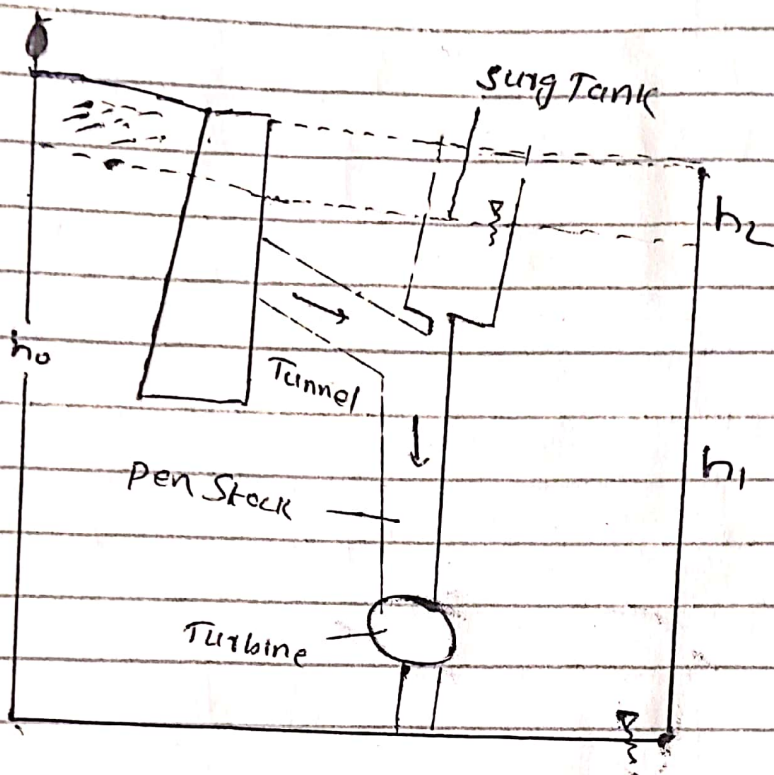 Surg Tank
h2
h0
Tunnel
h1
Pen Stock
Turbine